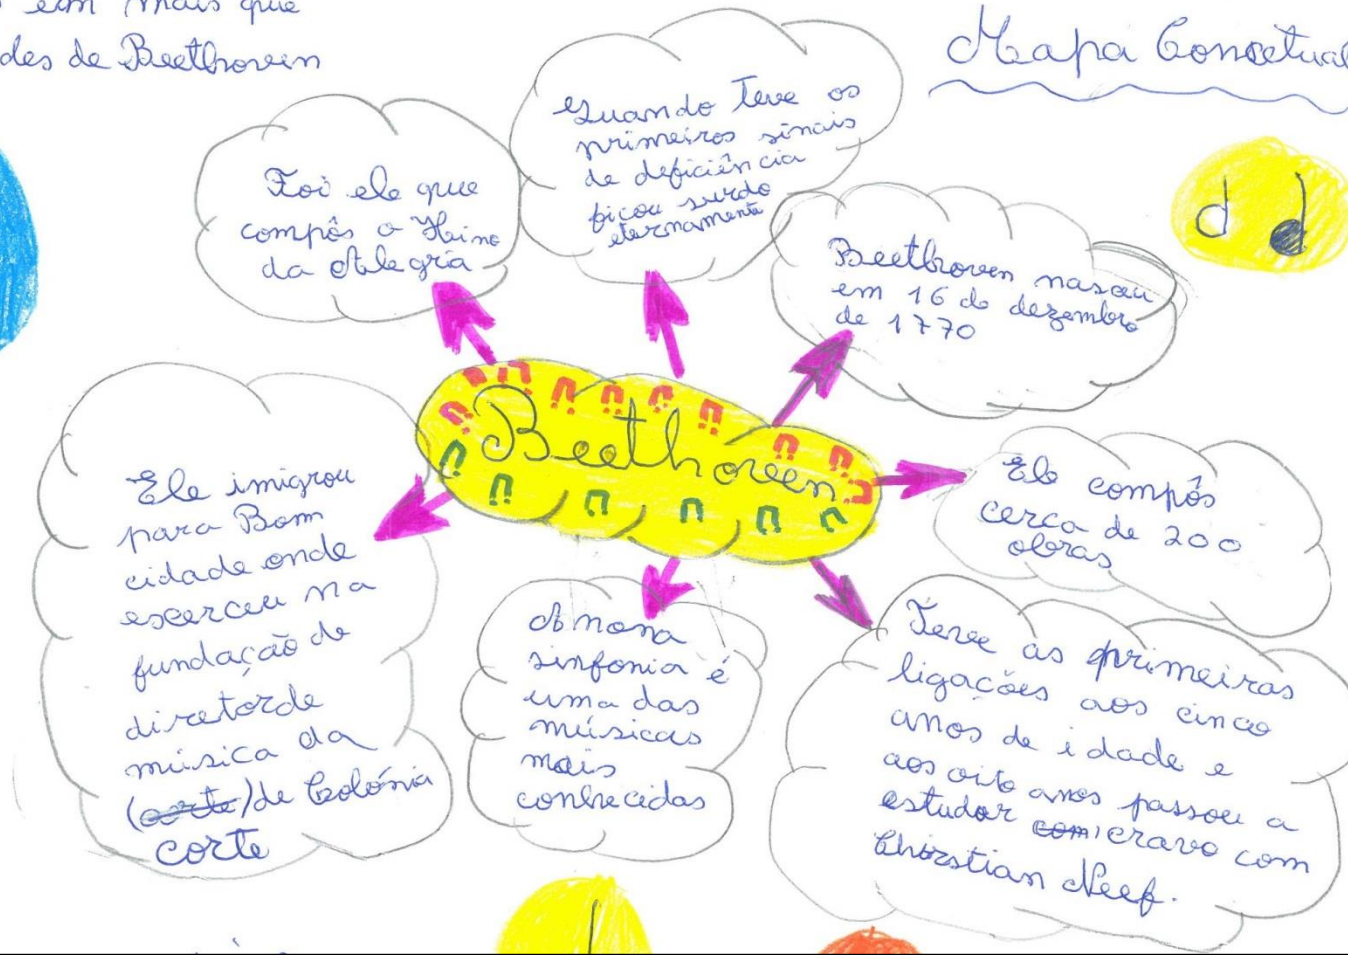 em mais que
des de Beethoven
Mapa Concetual
Foi ele que
compôs o Hino
da Alegria
Quando Teve os
primeiros sinais
de deficiência
ficou surdo
eternamente
Beethoven nasceu
em 16 de dezembro
de 1770
Beethoven
Ele compôs
cerca de 200
obras
Ele imigrou
para Bom
cidade onde
escerceu na
fundação de
diretor de
música da
(corte) de Colónia
corte
A nona
sinfonia é
uma das
músicas
mais
conhecidas
Teve as primeiras
ligações aos cinco
anos de idade e
aos oito anos passou a
estudar com cravo com
Christian Neef.